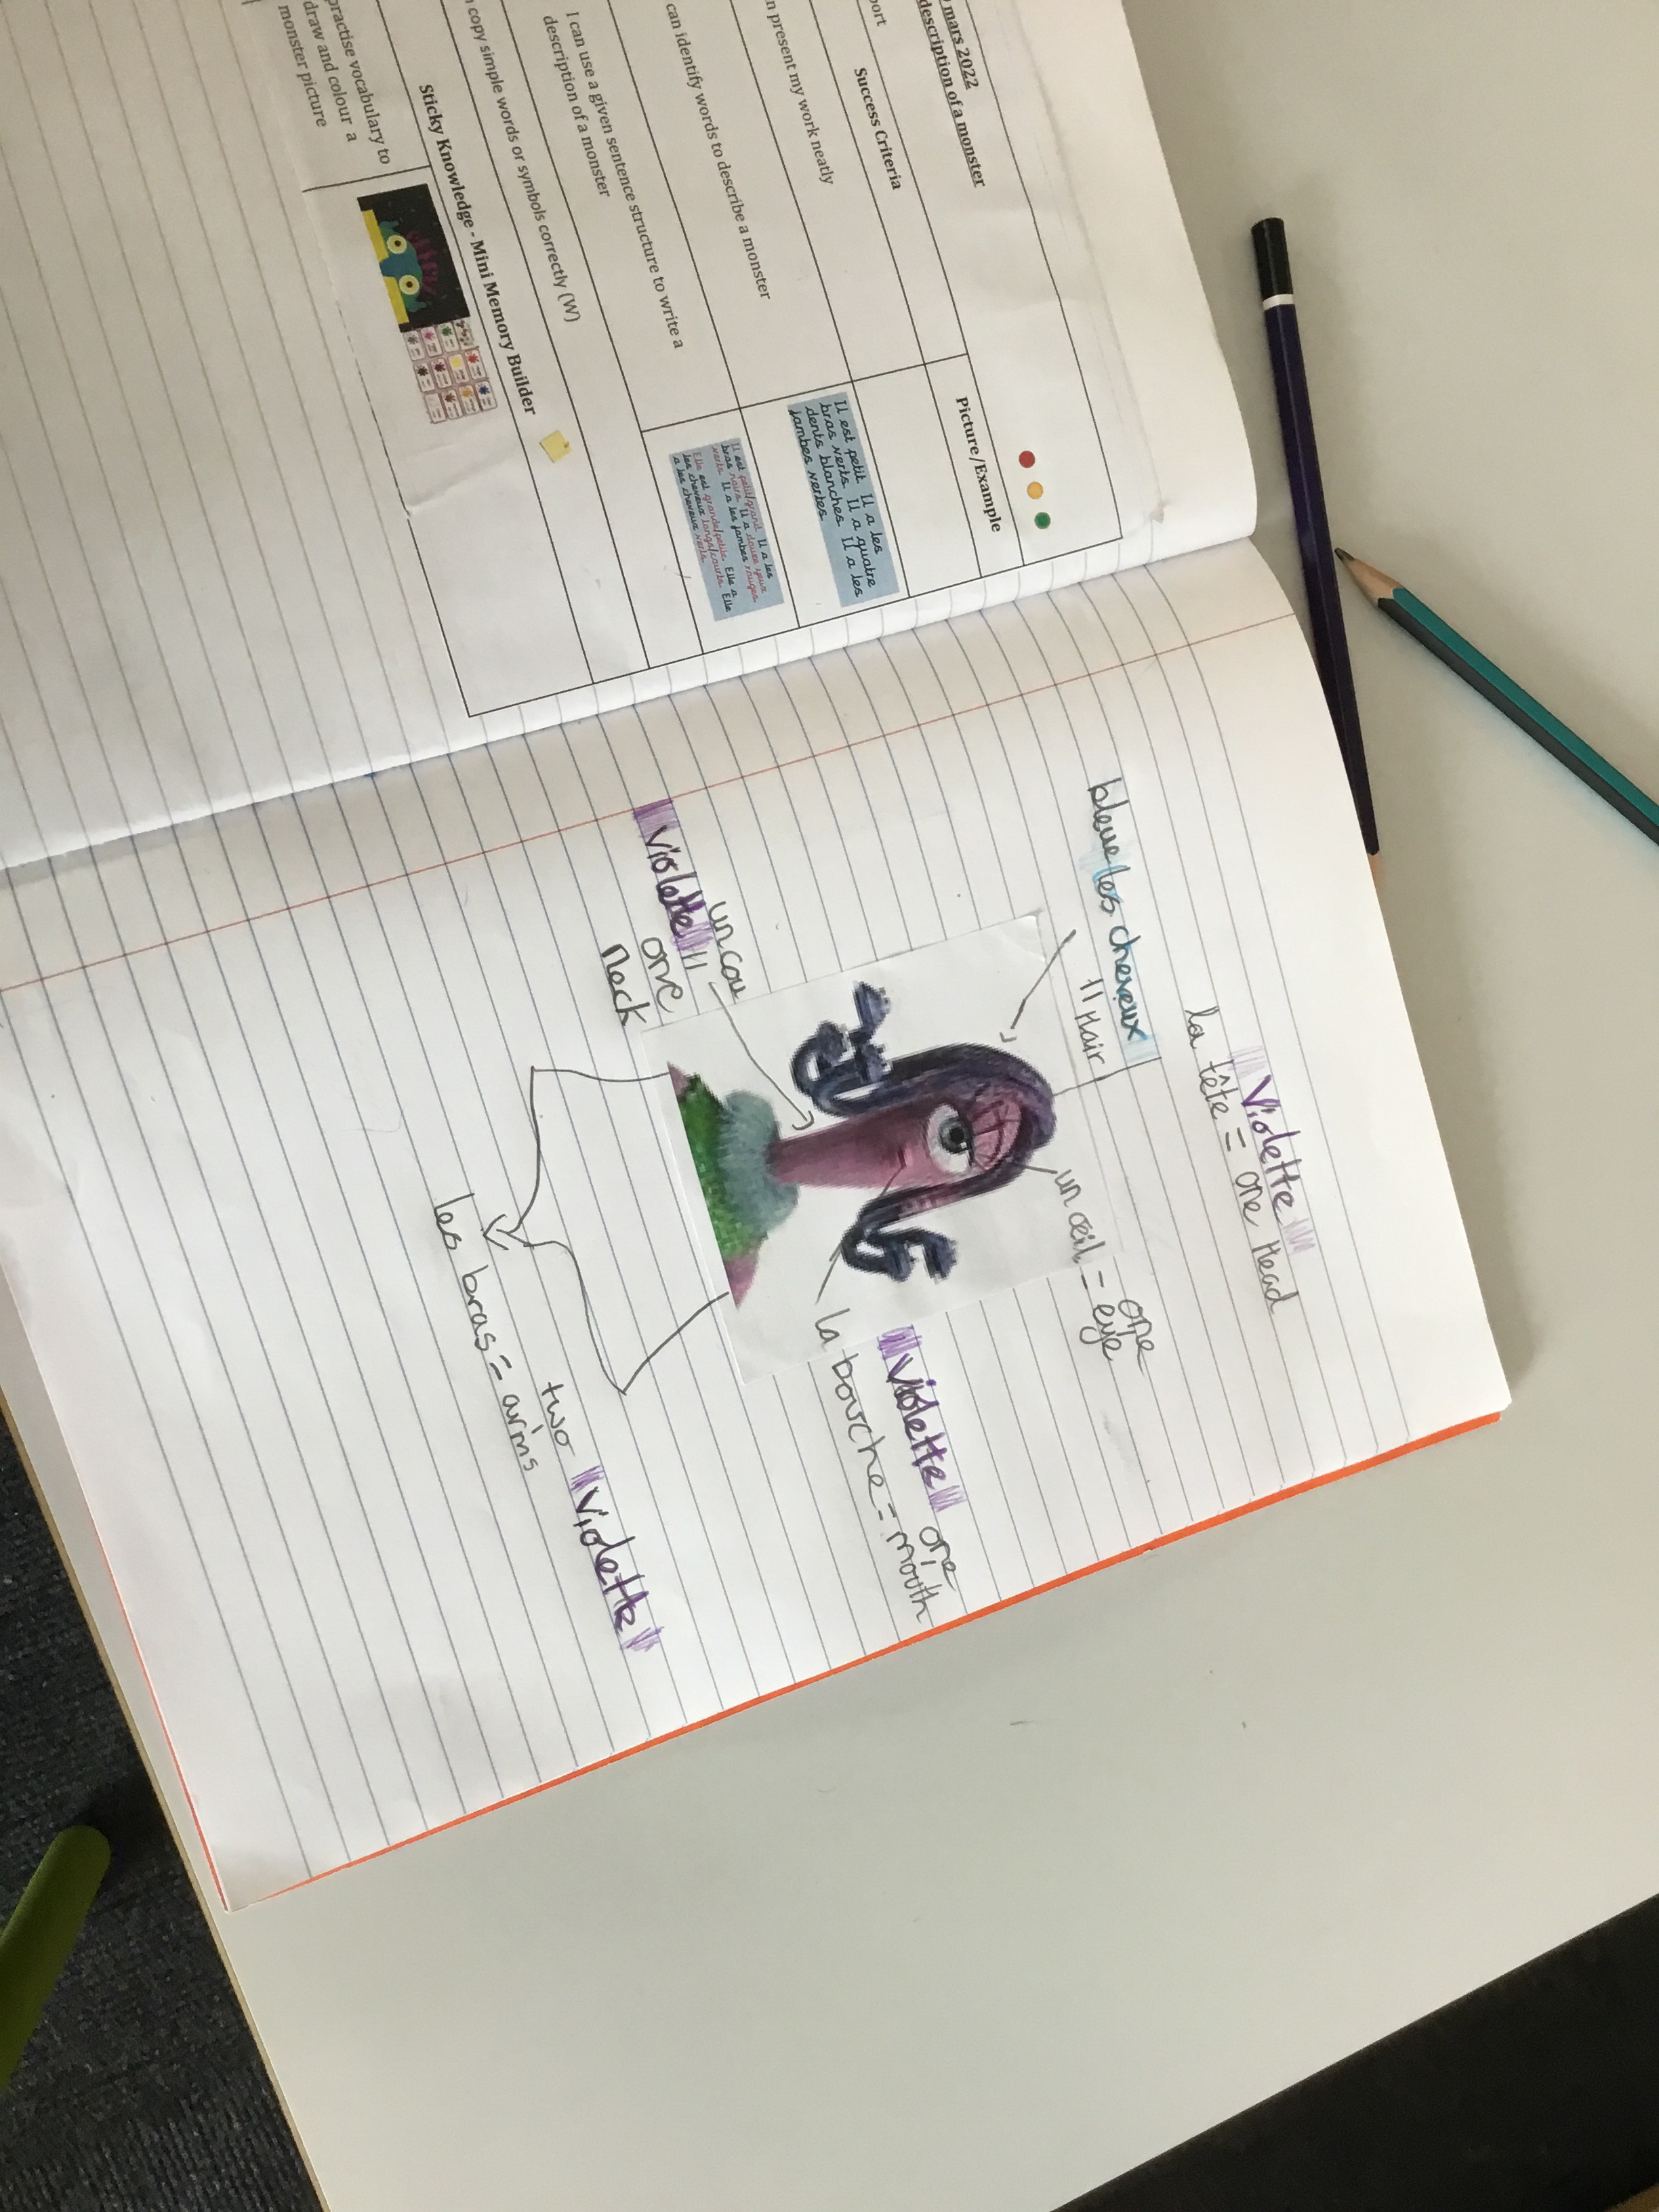 mars 2022
description of a monster
Success Criteria
Picture/Example
present my work neatly
can identify words to describe a monster
Il est petit. Il a les
bras verts. Il a quatre
dents blanches. Il a les
jambes vertes.
I can use a given sentence structure to write a
description of a monster
Il est petit/grand. Il a les
bras noirs. Il a douze yeux
verts. Il a les jambes rouges.
Elle est grande/petite. Elle a
les cheveux longs/courts. Elle
a les cheveux verts.
copy simple words or symbols correctly (W)
Sticky Knowledge - Mini Memory Builder
practise vocabulary to
draw and colour a
monster picture
Violette
la tête = one Head
bleue les cheveux
= Hair
un œil = one
eye
Violette
la bouche = one
mouth
un cou
Violette =
one
neck
two Violette
les bras = arms